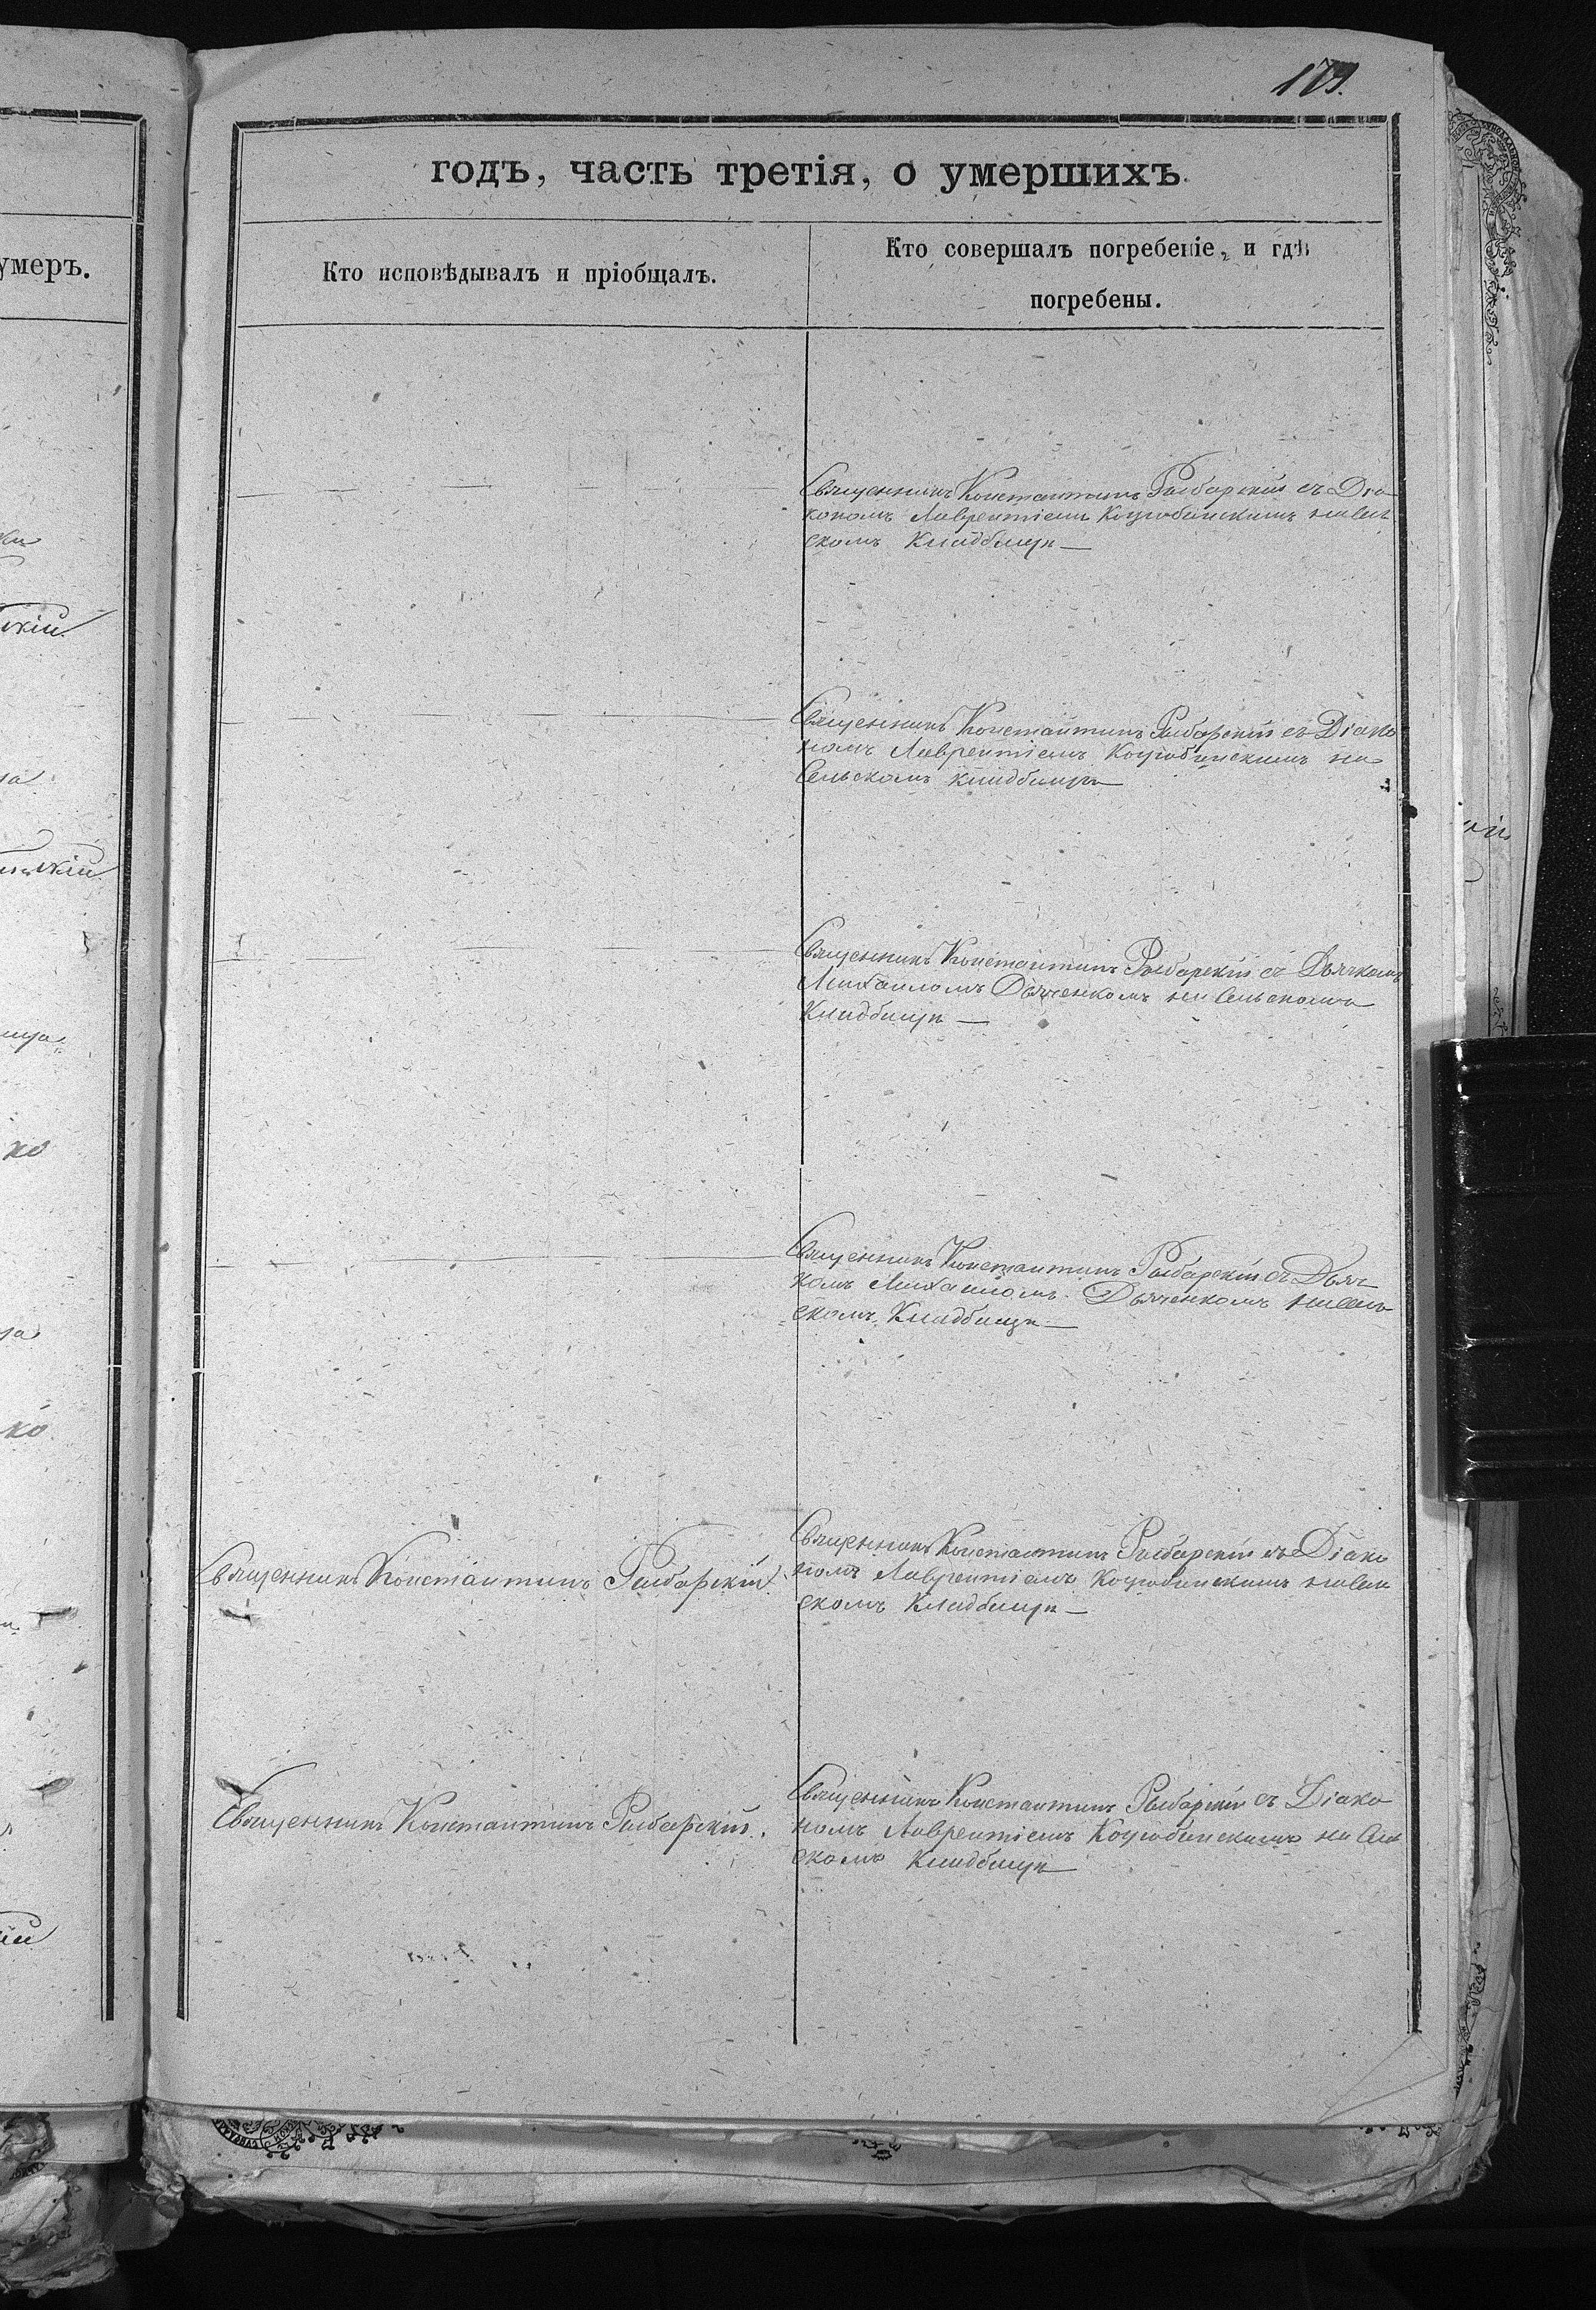 179.
годъ, часть третія, о умершихъ.
умеръ.
Кто исповѣдывалъ и пріобщалъ.
Кто совершалъ погребеніе, и гдѣ
погребены.
Священникъ Константинъ Рыбарскій съ Діа
кономъ Лаврентіемъ Коцюбинскимъ на сель
скомъ Кладбищѣ —
Священникъ Константинъ Рыбарскій съ Діако
номъ Лаврентіемъ Коцюбинскимъ на
Сельскомъ кладбищѣ
Священникъ Константинъ Рыбарскій съ Дьячкомъ
Михаиломъ Дьяченкомъ на Сельскомъ
Кладбищѣ —
Священникъ Константинъ Рыбарскій съ Дьяч
комъ Михаиломъ Дьяченкомъ на сель
скомъ Кладбищѣ —
Священникъ Константинъ Рыбарскій
Священникъ Константинъ Рыбарскій съ Діако
номъ Лаврентіемъ Коцюбинскимъ на сель
скомъ Кладбищѣ —
Священникъ Константинъ Рыбарскій.
Священникъ Константинъ Рыбарскій съ Діако
номъ Лаврентіемъ Коцюбинскимъ на Сель
скомъ Кладбищѣ